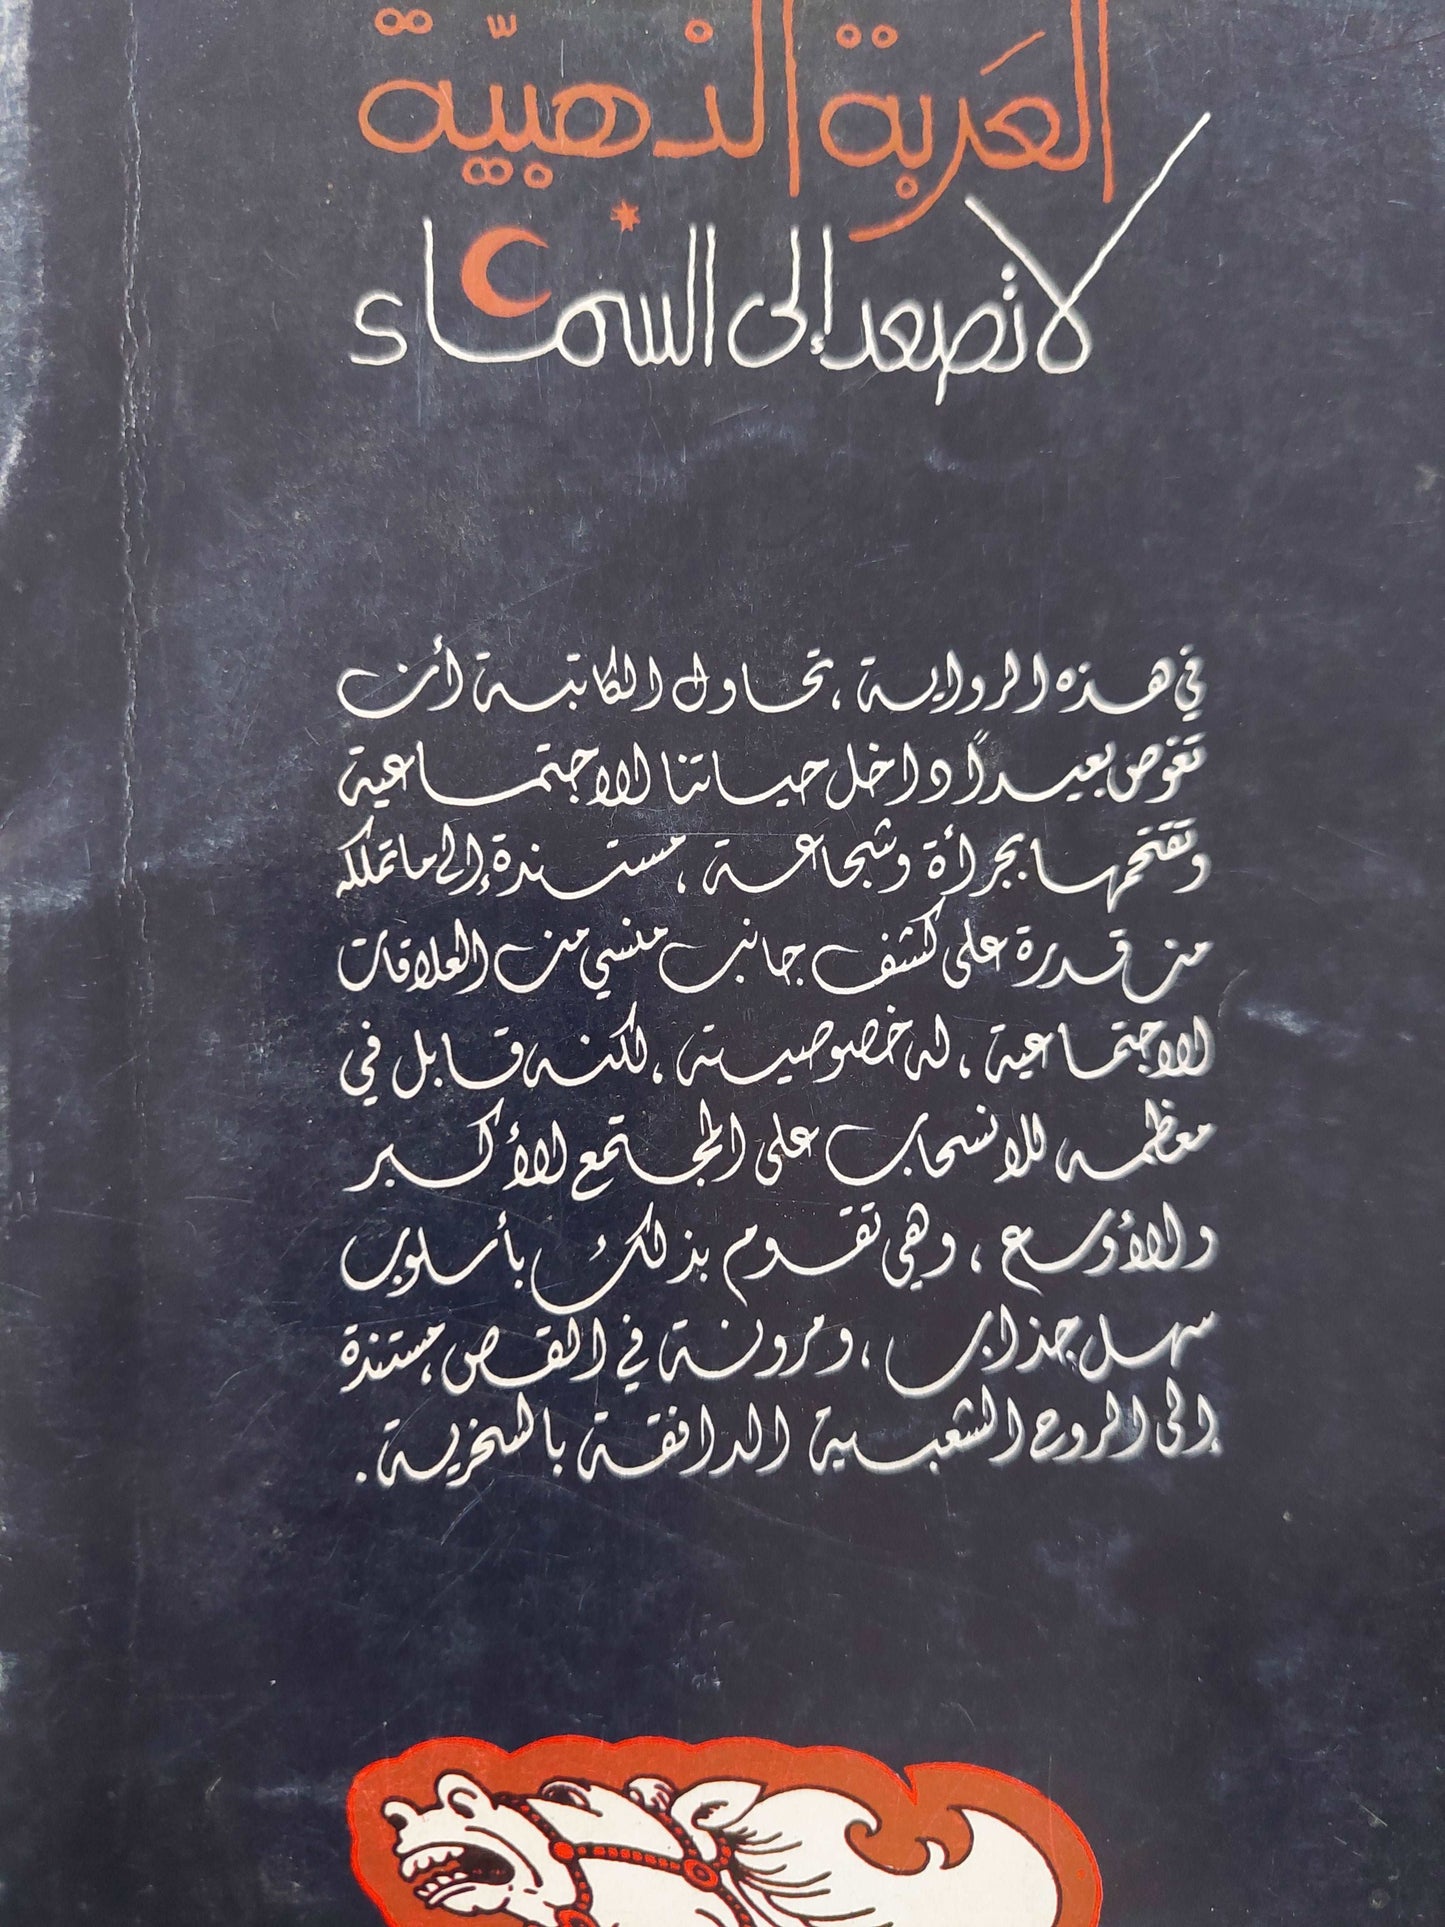 العَربة الذهبيّة
لا تصعد إلى السماء
في هذه الرواية ، تحاول الكاتبة أن
تغوص بعيداً داخل حياتنا الاجتماعية
وتقتحمها بجرأة وشجاعة ، مستندة إلى ما تملكه
من قدرة على كشف جانب منسي من العلاقات
الاجتماعية ، له خصوصيته ، لكنه قابل في
معظمه للانسحاب على المجتمع الأكبر
والأوسع ، وهي تقوم بذلك بأسلوب
سهل جذاب ، ومرونة في القص ، مستندة
إلى الروح الشعبية الدافقة بالسخرية .